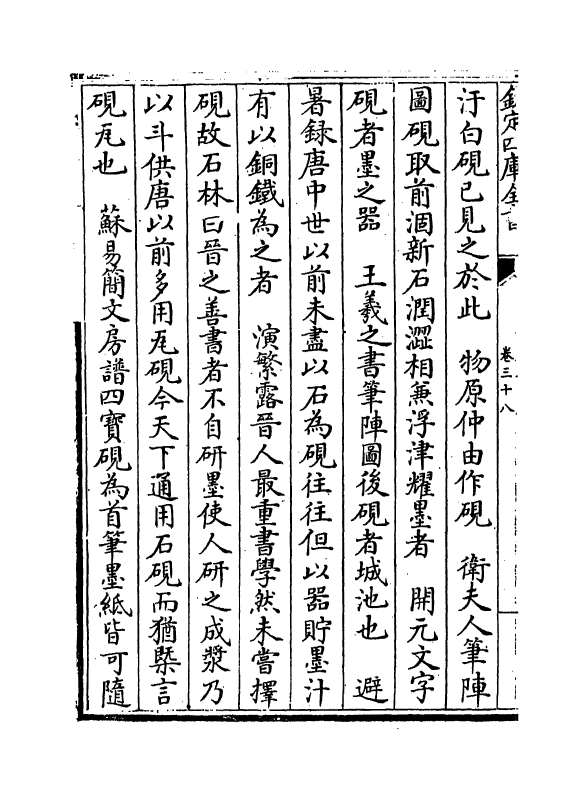 欽定四庫全書
卷三十八
汙白硯已見之於此　物原仲由作硯　衛夫人筆陣
圖硯取前涸新石潤澀相兼浮津耀墨者　開元文字
硯者墨之器　王羲之書筆陣圖後硯者城池也　避
暑録唐中世以前未盡以石為硯往往但以器貯墨汁
有以銅鐵為之者　演繁露晉人最重書學然未嘗擇
硯故石林曰晉之善書者不自研墨使人研之成漿乃
以斗供唐以前多用瓦硯今天下通用石硯而猶槩言
硯瓦也　蘇易簡文房譜四寶硯為首筆墨紙皆可隨